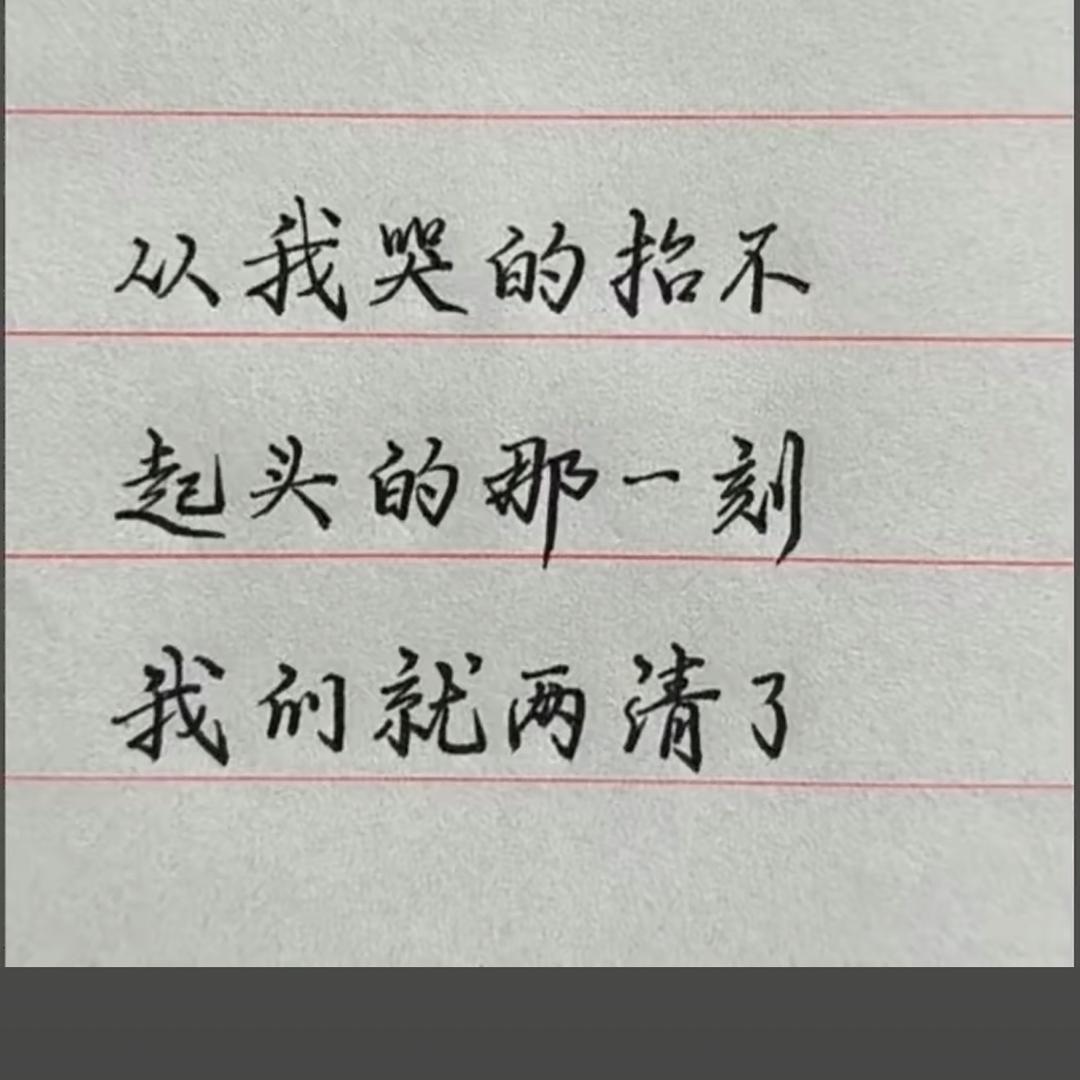 从我哭的抬不
起头的那一刻
我们就两清了